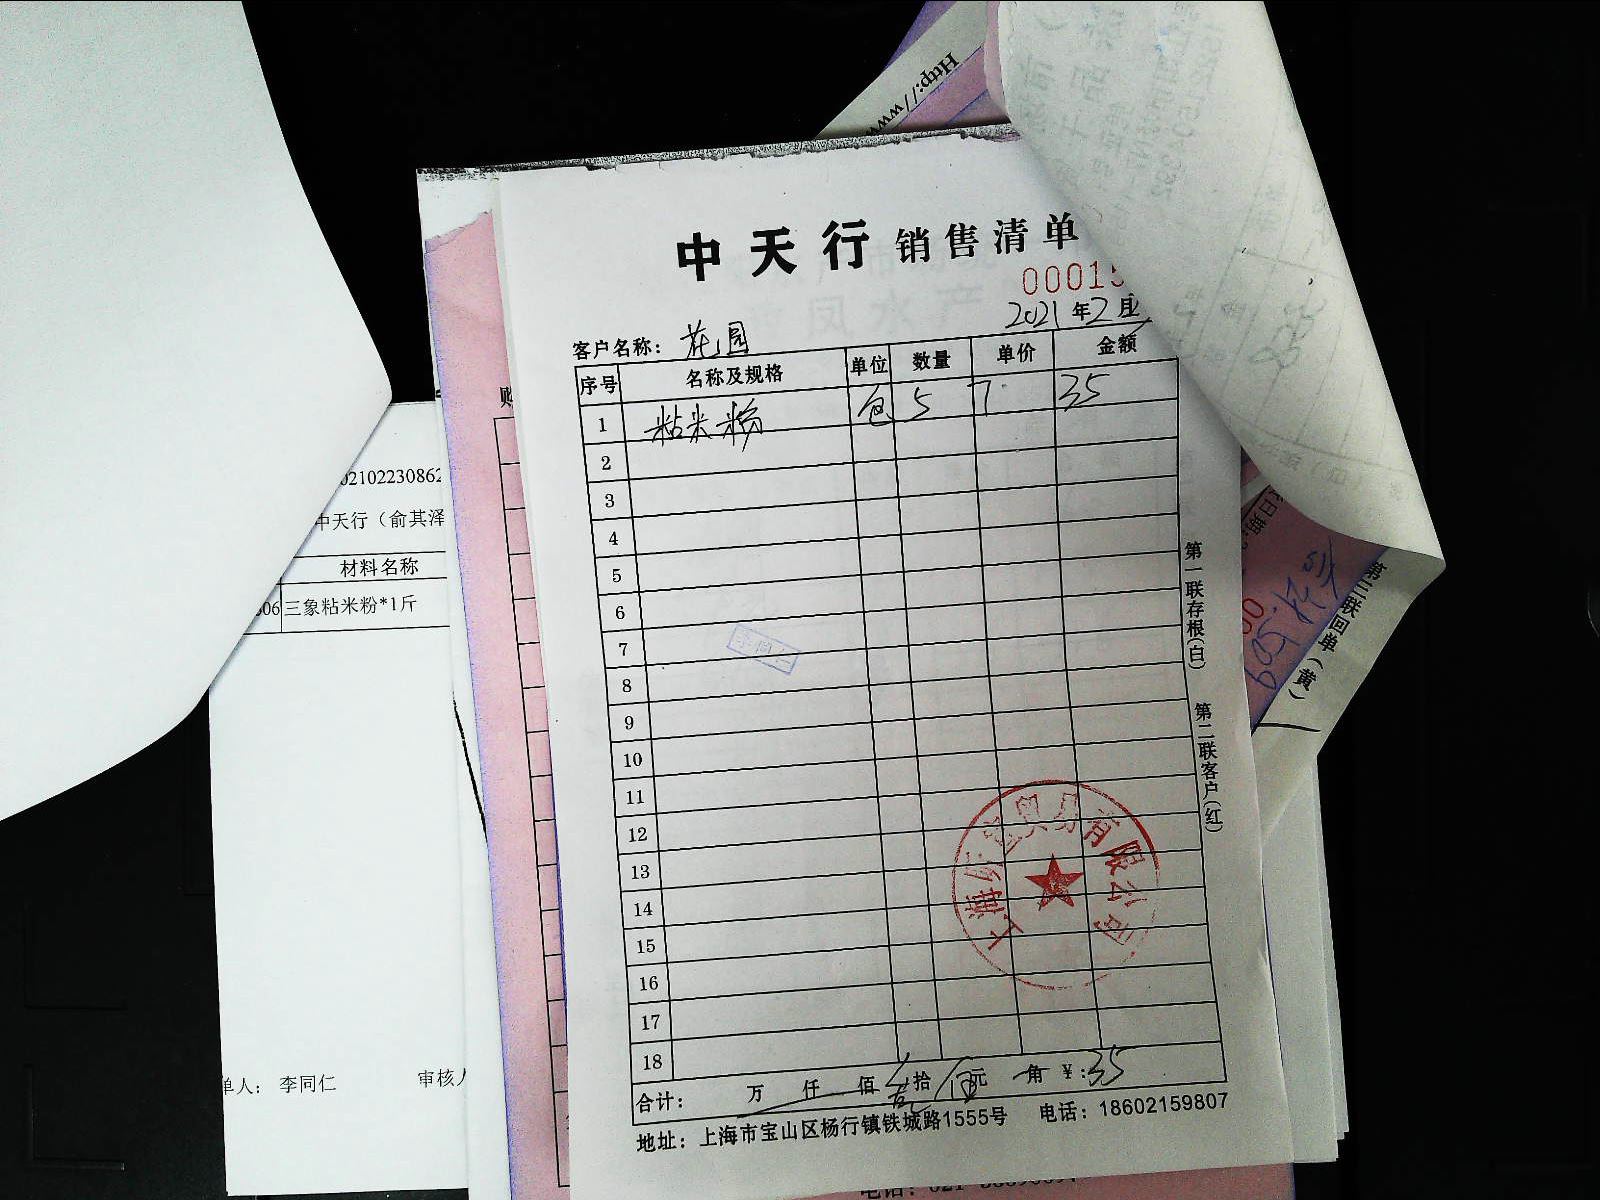 Http://www
中天行 销售清单
00015
2021年2月
客户名称：花园
序号 名称及规格 单位 数量 单价 金额
1 粘米粉 包 5 7 35
2
3
4
5
6
7
8
9
10
11
12
13
14
15
16
17
18
合计： 万 仟 佰 叁拾 伍元 角 ¥：35
地址：上海市宝山区杨行镇铁城路1555号 电话：18602159807
第一联存根(白) 第二联客户(红)
贸易有限公司
李同仁
02102230862
中天行（俞其泽
材料名称
306 三象粘米粉*1斤
单人： 李同仁 审核人
购
第三联回单（黄）
日期